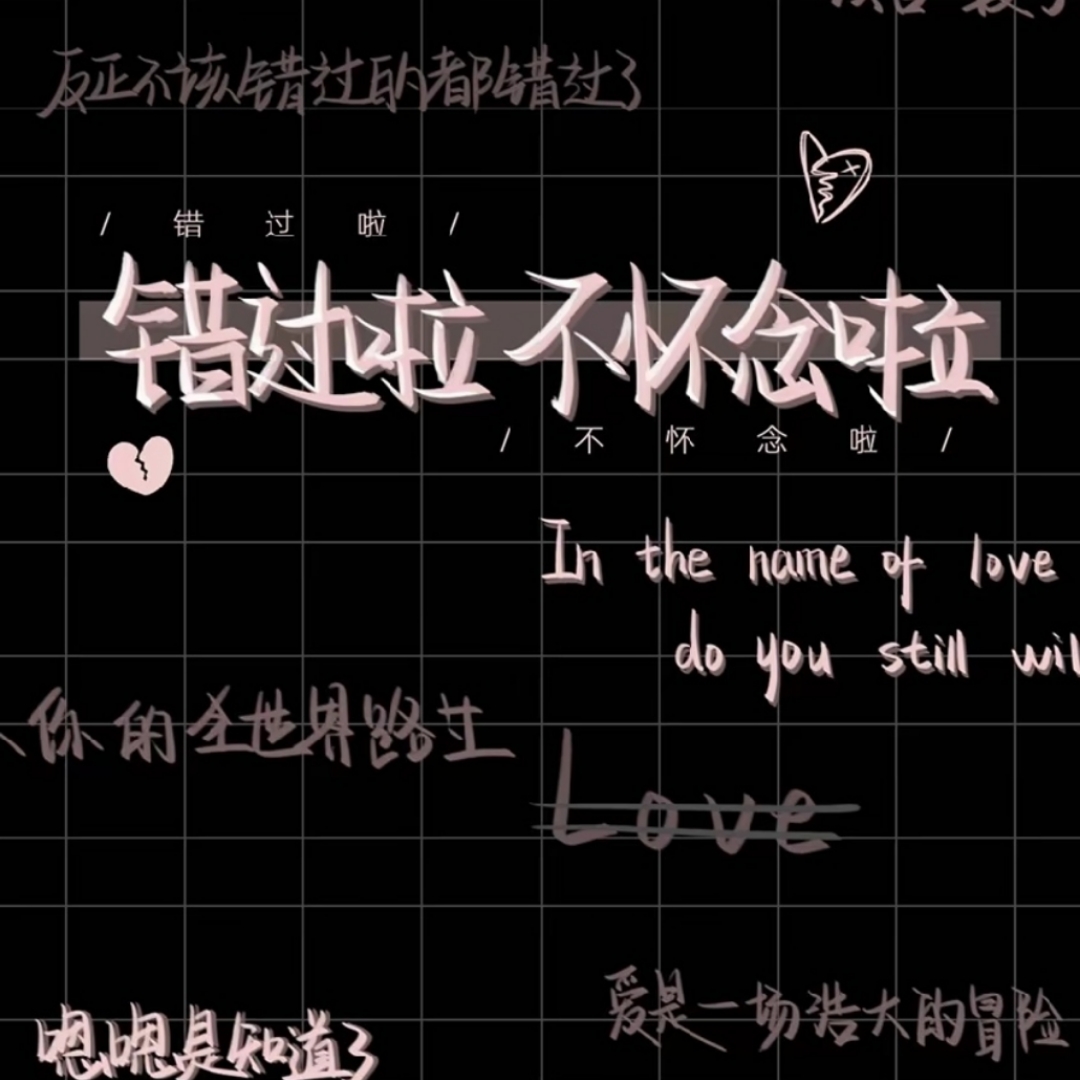 反正不该错过的都错过了
/ 错 过 啦 /
错过啦 不怀念啦
/ 不 怀 念 啦 /
In the name of love
do you still wil
你的全世界路过
Love
爱是一场浩大的冒险
嗯嗯是知道了